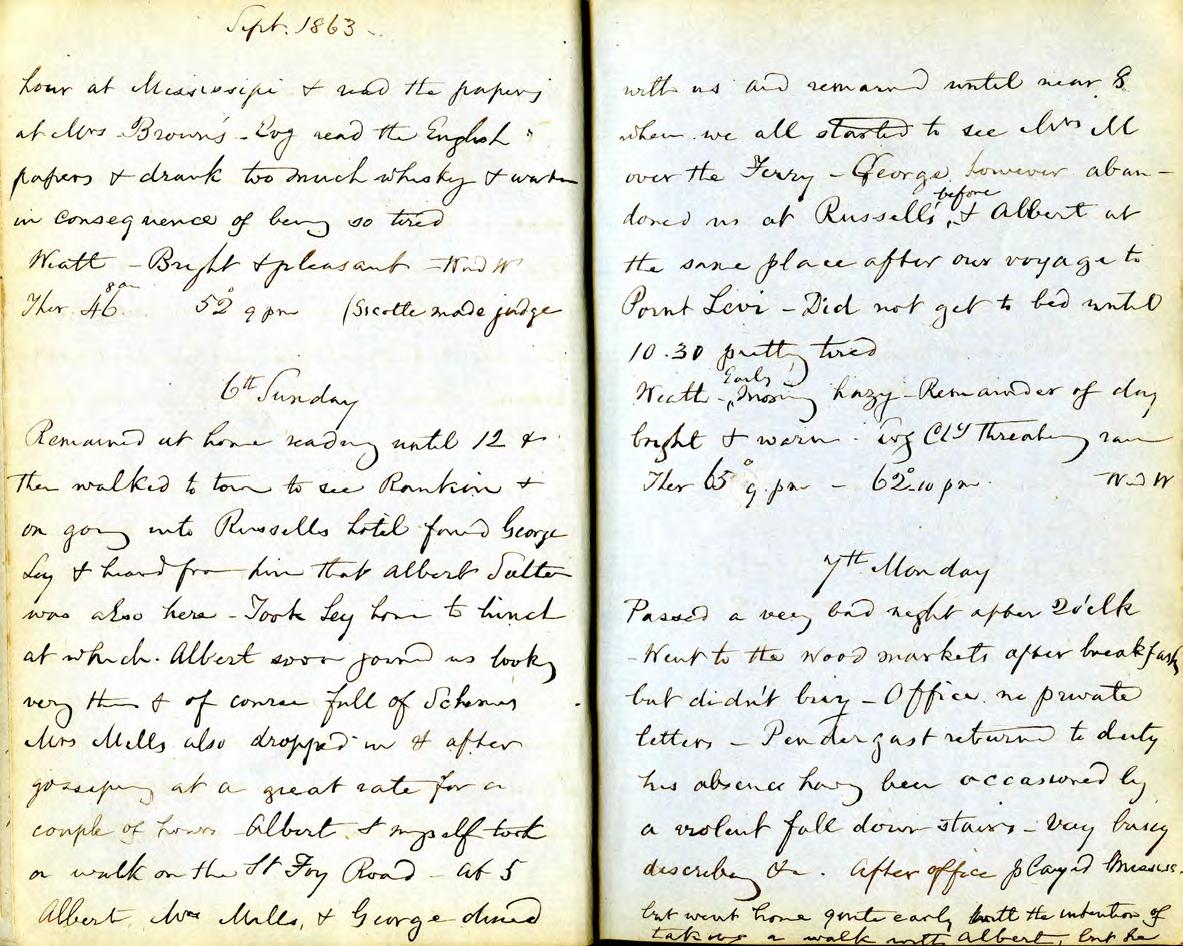 Sept. 1863 -
hour at Mississipi & read the papers
at Mrs Brown's - Evg read the English
papers & drank too much whisky & water
in consequence of being so tired
Weath - Bright & pleasant - Wnd W
Ther 46 8 am 52° 9 pm (Sicotte made judge
6th Sunday
Remained at home reading until 12 &
then walked to town to see Rankin &
on going into Russells hotel found George
Ley & heard from him that Albert Salter
was also here - Took Ley home to lunch
at which. Albert soon joined us looking
very thin & of course full of Schemes
Mrs Mills also dropped in & after
gossiping at a great rate for a
couple of hours Albert & myself took
a walk on the St Foy Road - at 5
Albert, Mrs Mills, & George dined
with us and remained until near 8
when we all started to see Mrs M
over the Ferry - George, however aban-
doned us at Russells before, & Albert at
the same place after our voyage to
Point Levi - Did not get to bed until
10.30 pretty tired
Weath - Early Morning hazy - Remainder of day
bright & warm - Evg Cldy threateng rain
Ther 65° 9. pm - 62° 10 pm. Wnd W
7th Monday
Passed a very bad night after 2 o'clk
- Went to the wood markets after breakfast
but didn't buy - Office no private
letters - Pendergast returned to duty
his absence having been occasioned by
a violent fall down stairs - Very busy
describing &c. After office played Mississ.
but went home quite early with the intention of
taking a walk with Albert, but he